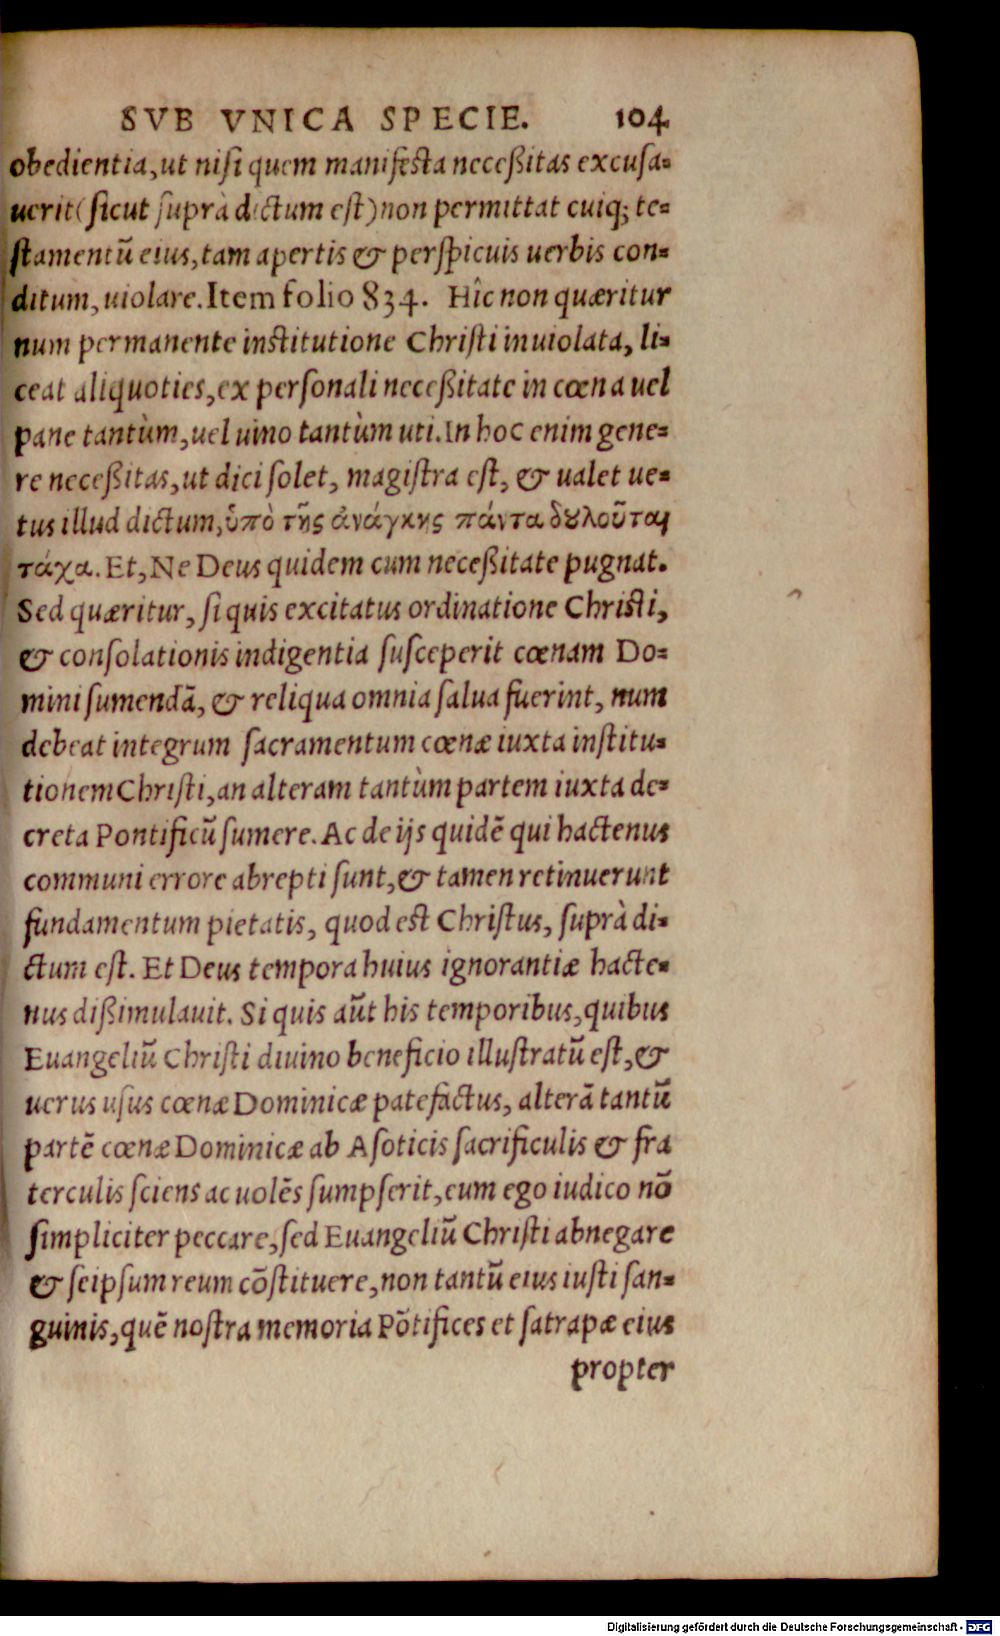 SVB VNICA SPECIE. 104
obedientia, ut nisi quem manifesta neceßitas excusa-
uerit (sicut suprà dictum est) non permittat cuiq; te-
stamentũ eius, tam apertis & perspicuis uerbis con-
ditum, uiolare. Item folio 834. Hîc non quæritur
num permanente institutione Christi inuiolata, li-
ceat aliquoties, ex personali neceßitate in cœna uel
pane tantùm, uel uino tantùm uti. In hoc enim gene-
re neceßitas, ut dici solet, magistra est, & ualet ue-
tus illud dictum, ὑπὸ τῆς ἀνάγκης πάντα δȣλοῦται
τάχα. Et, Ne Deus quidem cum neceßitate pugnat.
Sed quæritur, si quis excitatus ordinatione Christi,
& consolationis indigentia susceperit cœnam Do-
mini sumendã, & reliqua omnia salua fuerint, num
debeat integrum sacramentum cœnæ iuxta institu-
tionem Christi, an alteram tantùm partem iuxta de-
creta Pontificũ sumere. Ac de ijs quidẽ qui hactenus
communi errore abrepti sunt, & tamen retinuerunt
fundamentum pietatis, quod est Christus, suprà di-
ctum est. Et Deus tempora huius ignorantiæ hacte-
nus dißimulauit. Si quis aũt his temporibus, quibus
Euangeliũ Christi diuino beneficio illustratũ est, &
uerus usus cœnæ Dominicæ patefactus, alterã tantũ
partẽ cœnæ Dominicæ ab Asoticis sacrificulis & fra
terculis sciens ac uolẽs sumpserit, eum ego iudico nõ
simpliciter peccare, sed Euangeliũ Christi abnegare
& seipsum reum cõstituere, non tantũ eius iusti san-
guinis, quẽ nostra memoria Põtifices et satrapæ eius
propter
Digitalisierung gefördert durch die Deutsche Forschungsgemeinschaft - DFG